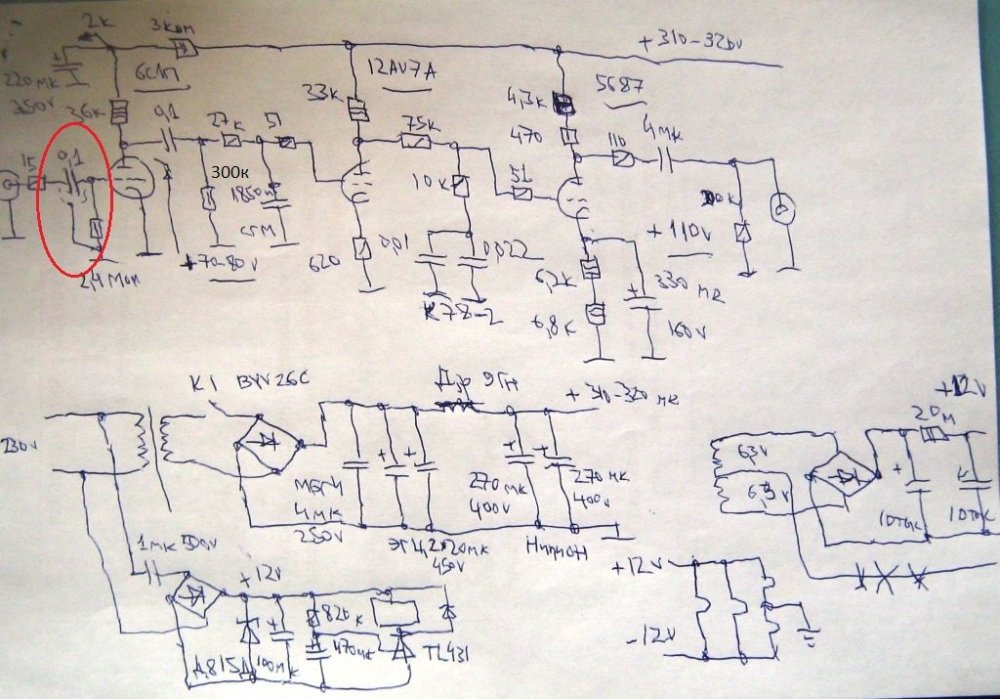 2к
3ком
+310-320v
220мк
350v
6С1П
36к
0,1
27к
51
12AU7A
33к
75к
5687
4,3к
470
110
4мк
15
0,1
300к
1850п
СГМ
+70-80v
2,4 Мом
620
10к
0,01
0,022
К78-2
51
6,2к
6,8к
+110v
330 мк
160v
К1
BYV26C
Др 9Гн
+310-320
230v
МБГЧ
4мк
250v
220мк
450v
270 мк
400v
270 мк
400v
Ничкон
1мк 500v
+12v
Д815Д
100мк
820к
470мк
TL431
6,3v
6,3v
+12v
20м
10тыс
10тыс
+12v
-12v